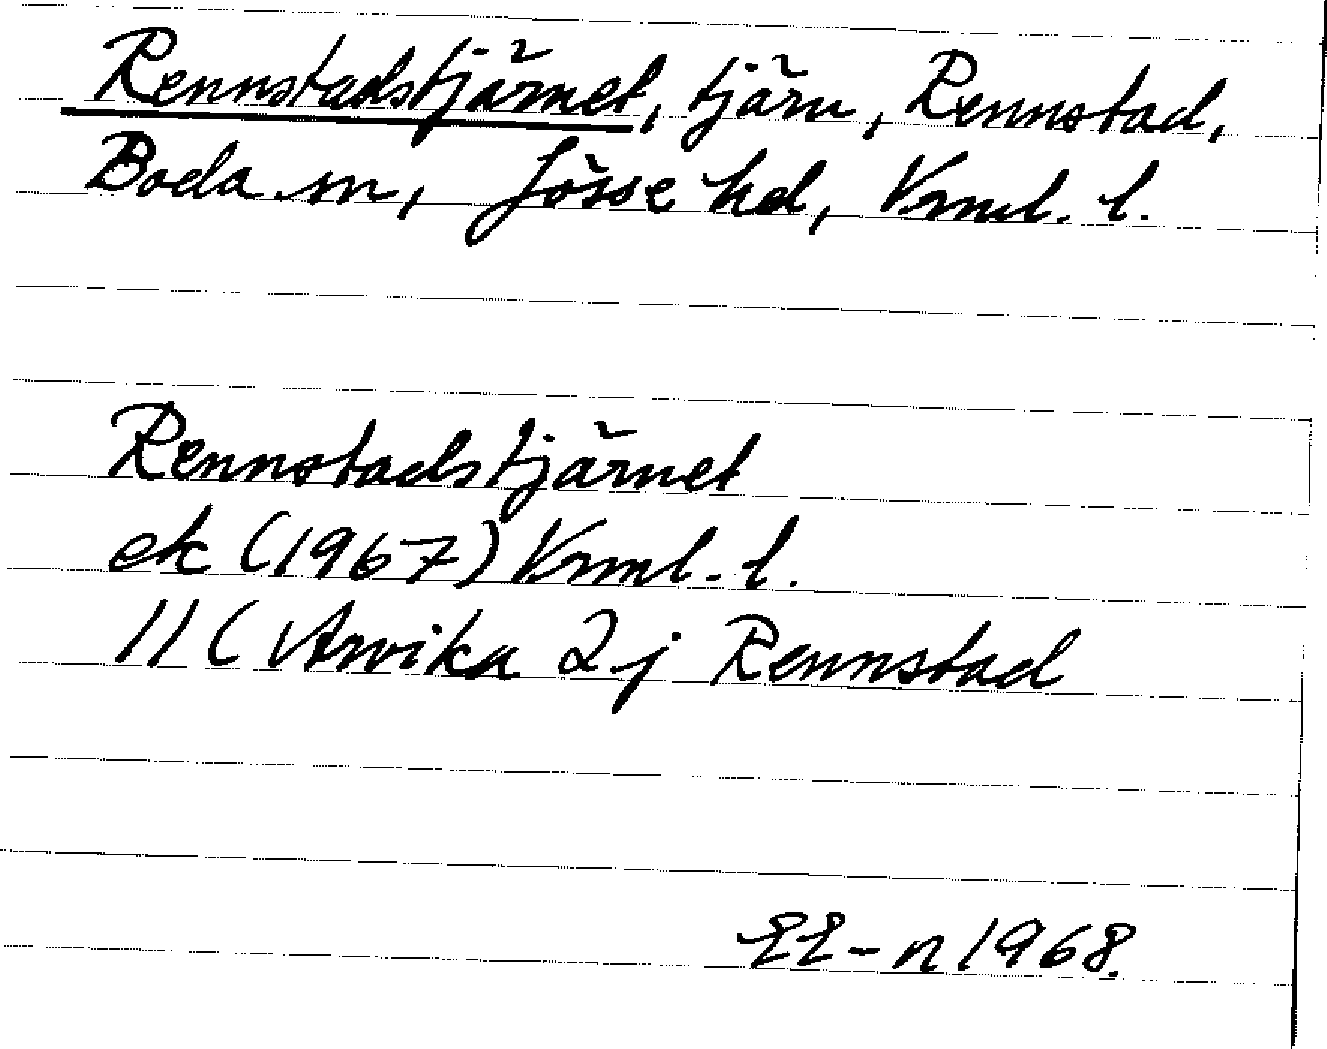 Rennstadstjärnet, tjärn, Rennstad,
Boda sn, Jösse hd, Vrml. l.
Rennstadstjärnet
ek (1967) Vrml. l.
11 C Arvika 2 j Rennstad
EE-n 1968.